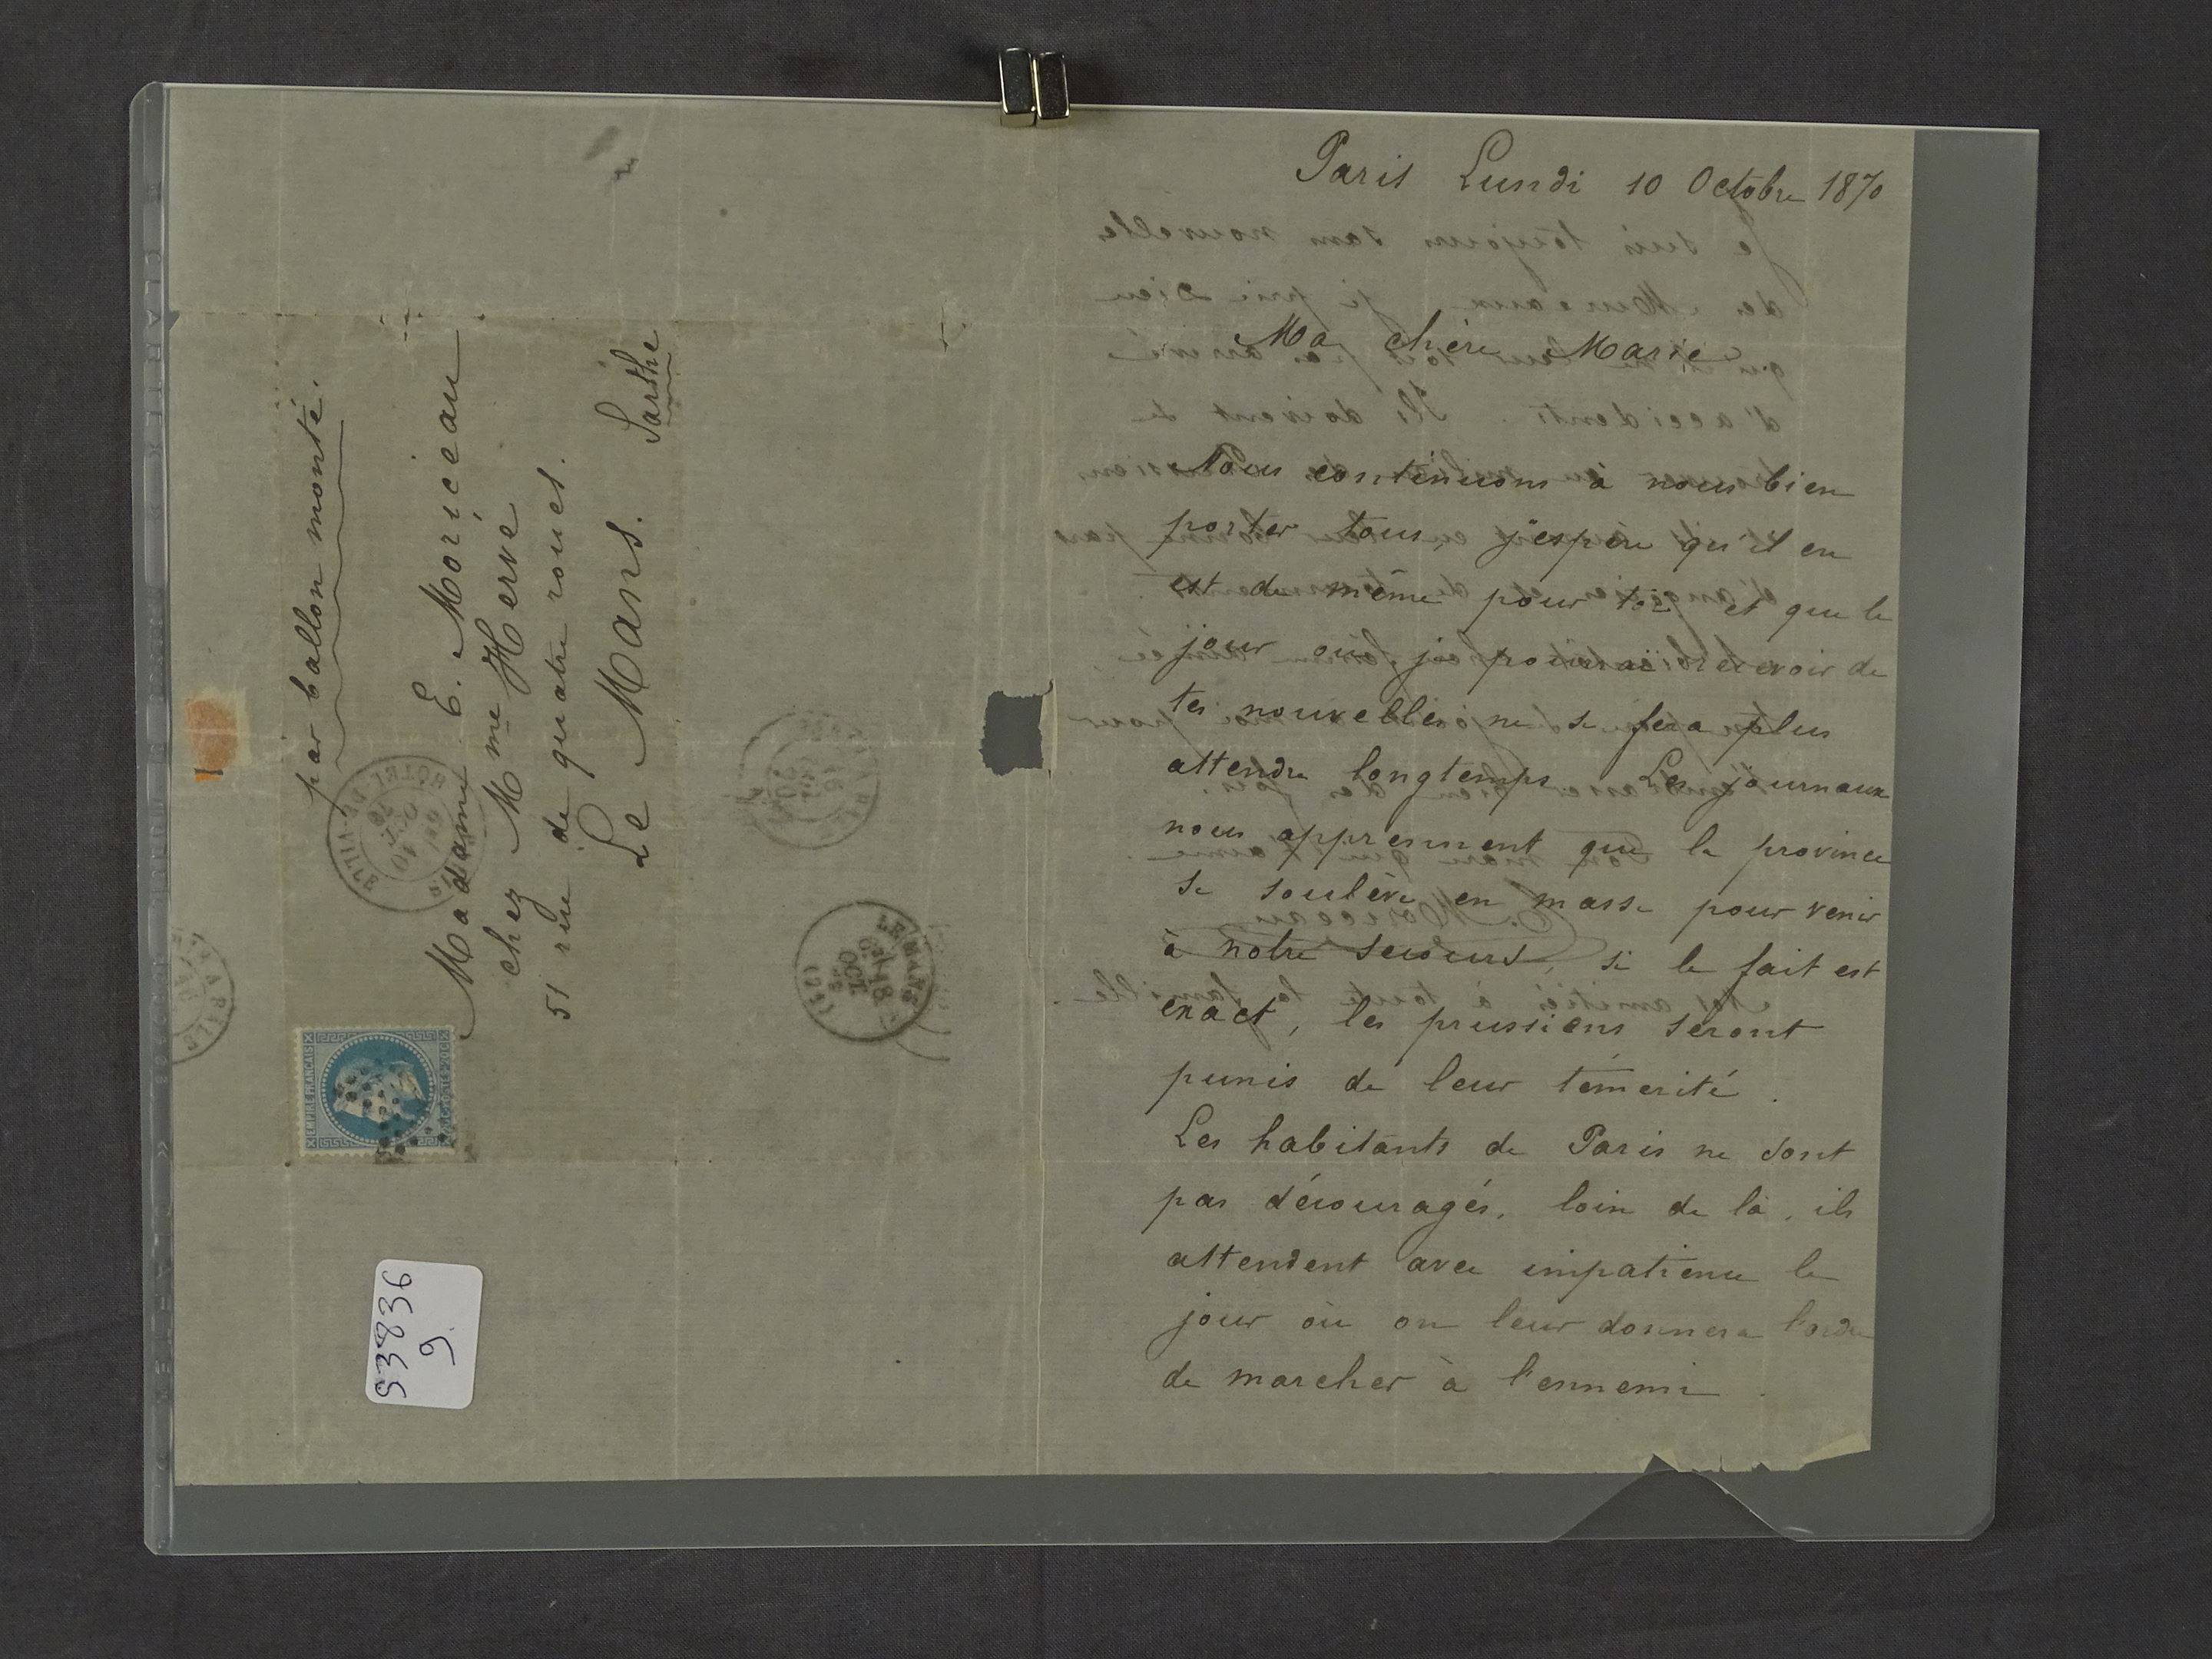 par ballon monté.
Madame E. Moriceau
chez Mme Hervé
51 rue de quatre roues.
Le Mans.
Sarthe
EMPIRE FRANÇAIS
LE MANS
OCT.
93836
9.
Paris Lundi 10 Octobre 1870
Ma chère Marie
Nous continuons à nous bien
porter tous, j'espère qu'il en
est de même pour toi et que le
jour où je pourrai recevoir de
tes nouvelles ne se fera plus
attendre longtemps. Les journaux
nous apprennent que la province
se soulève en masse pour venir
à notre secours, si le fait est
exact, les prussiens seront
punis de leur témerité.
Les habitants de Paris ne sont
pas découragés, loin de là, ils
attendent avec impatience le
jour où on leur donnera l'ordre
de marcher à l'ennemi.